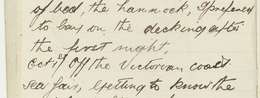 of bed, the hammock, I prefered
to lay on, the decking after
the first night,
Oct 19 Off the Victorian coast
sea fair, getting to know the